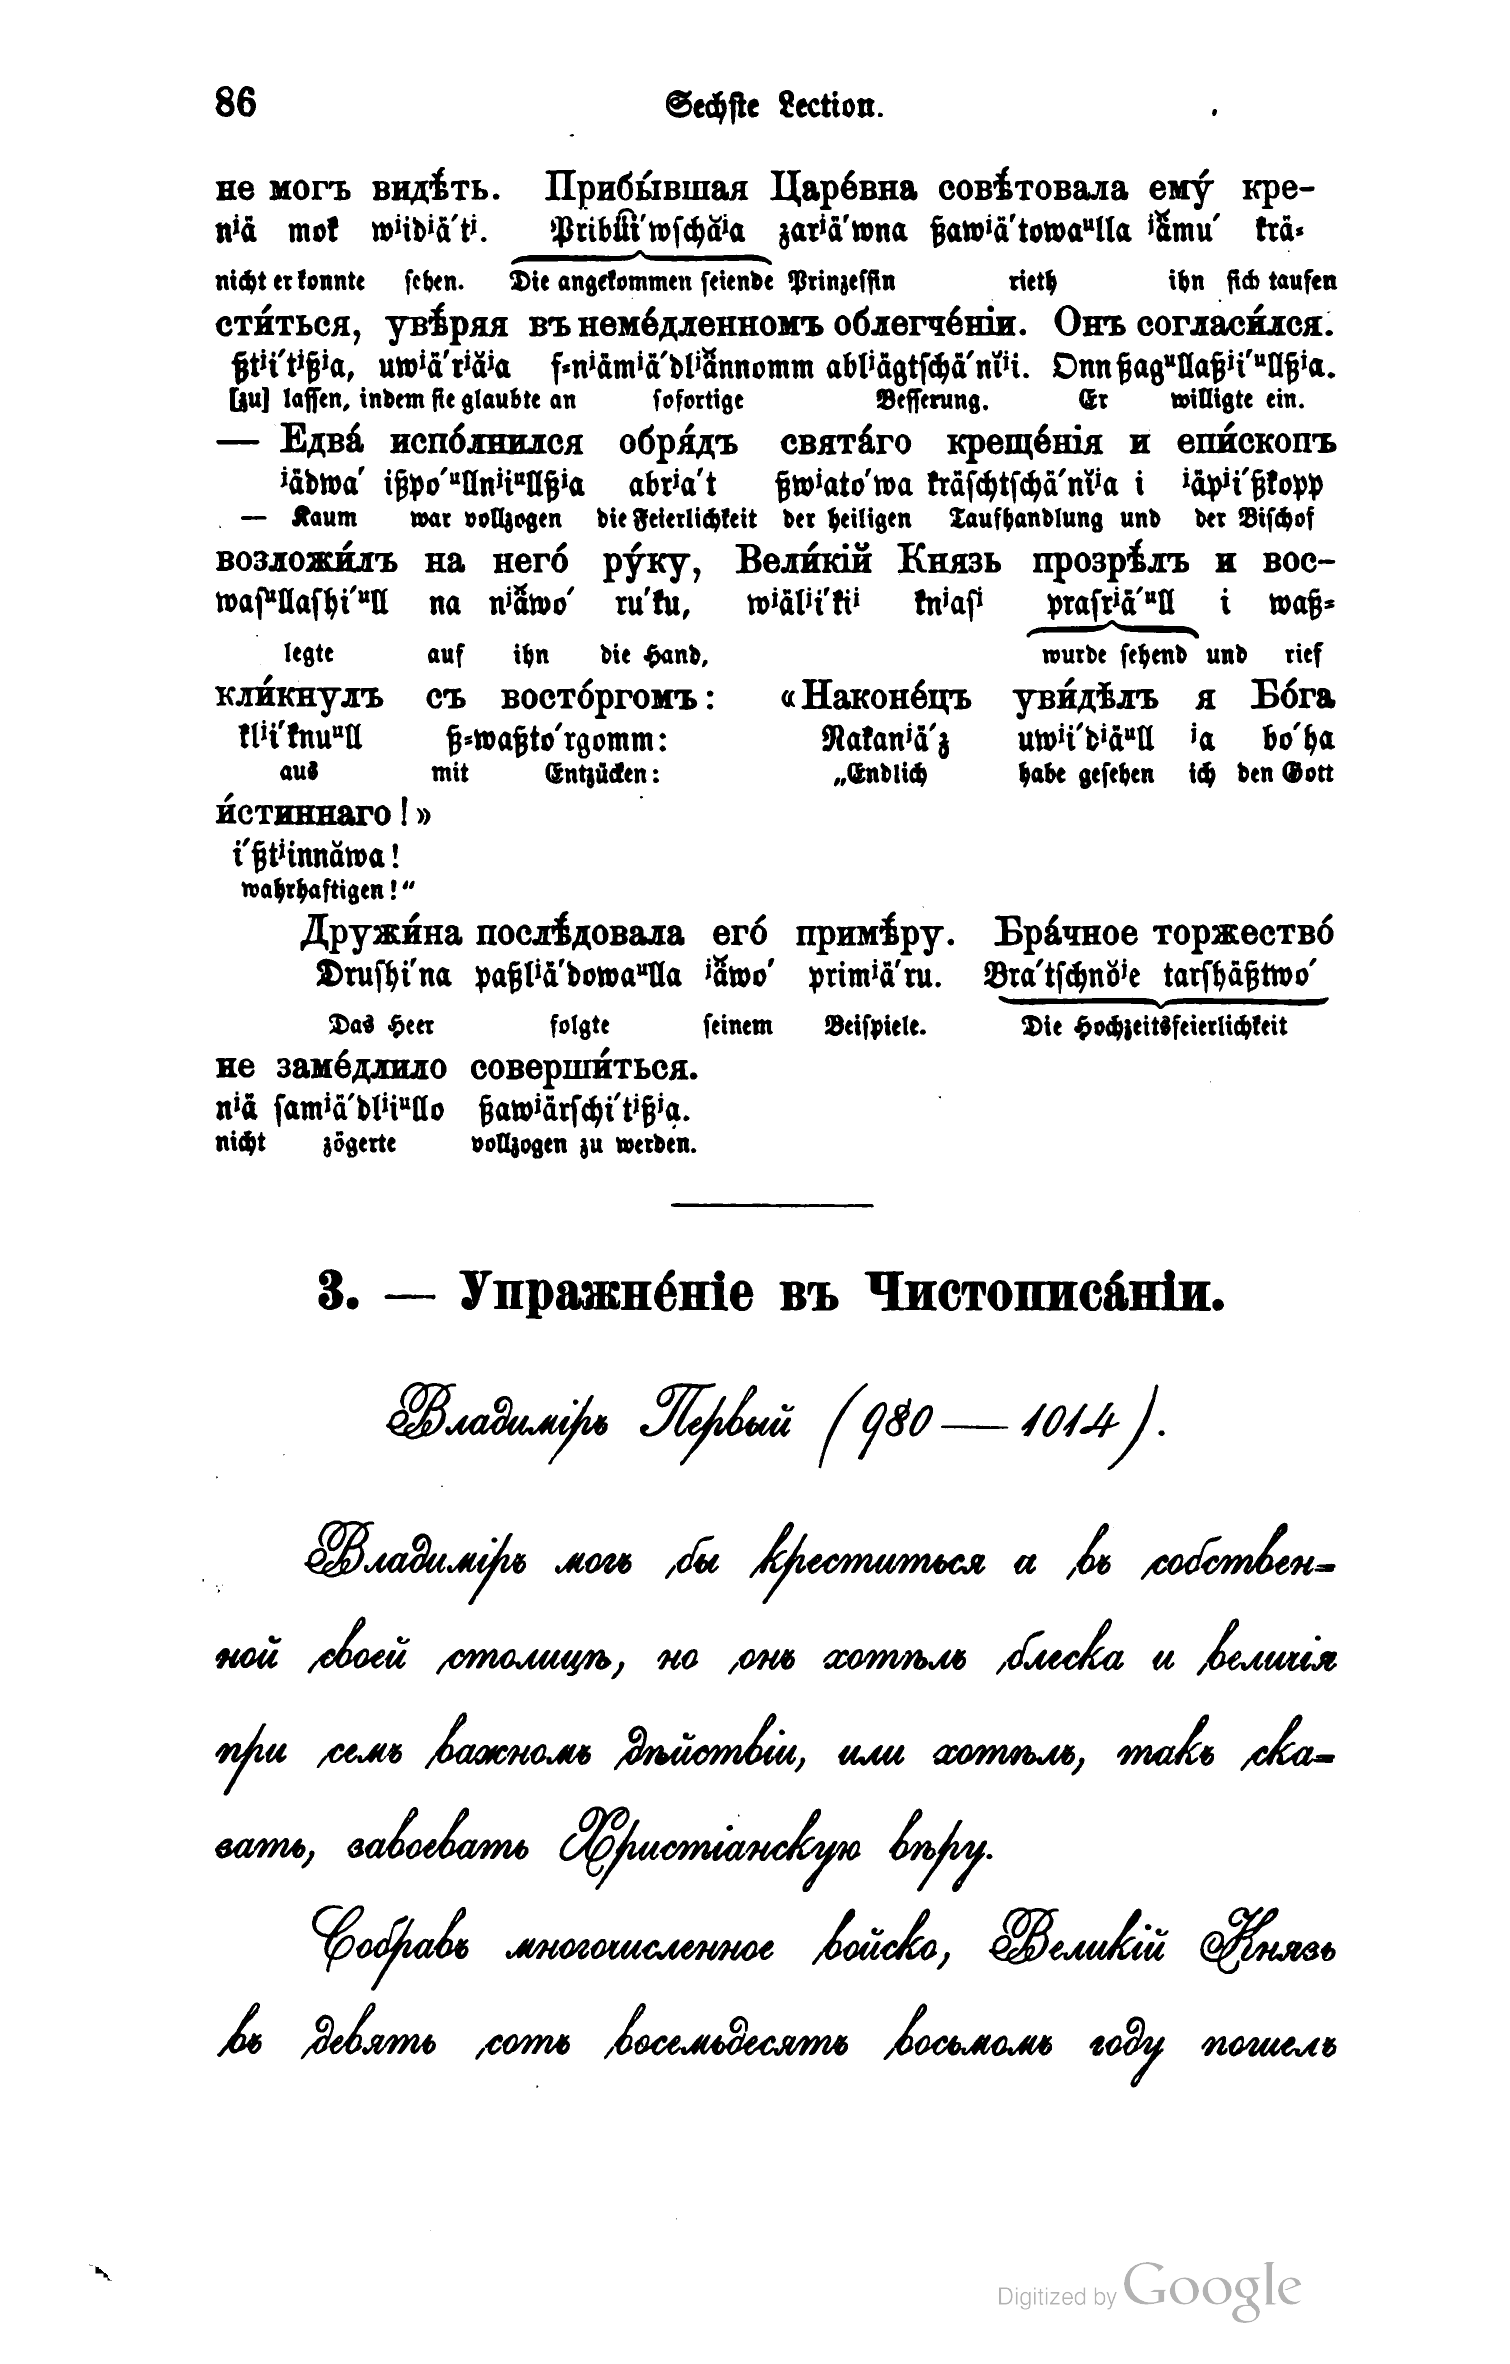 86 Sechste Lection.
не могъ видѣ́ть. Прибы́вшая Царе́вна совѣ́товала ему́ кре-
nⁱä mok wⁱidⁱä́tⁱ. Pribüi´wschăⁱa zarⁱä´wna ßawⁱä´towaᵘlla ⁱä̆mu´ krä-
nicht er konnte sehen. Die angekommen seiende Prinzessin rieth ihn sich taufen
сти́ться, увѣ́ряя въ неме́дленномъ облегче́ніи. Онъ согласи́лся.
ßtⁱi´tⁱßⁱa, uwⁱä´rⁱăⁱa f-nⁱämⁱä´dlⁱä̆nnomm ablⁱägtschä´nĭⁱi. Onn ßagᵘllaßⁱi´ᵘllßⁱa.
[zu] lassen, indem sie glaubte an sofortige Besserung. Er willigte ein.
— Едва́ испо́лнился обря́дъ свята́го креще́нія и епи́скопъ
ⁱädwa´ ißpo´ᵘllnⁱiᵘllßⁱa abrⁱa´t ßwⁱato´wa kräschtschä´nĭⁱa i ⁱäpⁱi´ßkopp
— Kaum war vollzogen die Feierlichkeit der heiligen Taufhandlung und der Bischof
возложи́лъ на него́ ру́ку, Вели́кій Князь прозрѣ́лъ и вос-
wasᵘllashi´ᵘll na nⁱä̆wo´ ru´ku, wⁱälⁱi´kiⁱ knⁱasⁱ prasrⁱä´ᵘll i waß-
legte auf ihn die Hand, wurde sehend und rief
кли́кнулъ съ восто́ргомъ: «Наконе́цъ уви́дѣлъ я Бо́га
klⁱi´knuᵘll ß-waßto´rgomm: Nakanⁱä´z uwⁱi´dⁱäᵘll ⁱa bo´ha
aus mit Entzücken: „Endlich habe gesehen ich den Gott
и́стиннаго!»
i´ßtⁱinnăwa!
wahrhaftigen!“
Дружи́на послѣ́довала его́ примѣ́ру. Бра́чное торжество́
Drushi´na paßlⁱä´dowaᵘlla ⁱä̆wo´ primⁱä´ru. Bra´tschnŏⁱe tarshäßtwo´
Das Heer folgte seinem Beispiele. Die Hochzeitsfeierlichkeit
не заме́длило соверши́ться.
nⁱä samⁱä´dlⁱiᵘllo ßawⁱärschi´tⁱßⁱa.
nicht zögerte vollzogen zu werden.
3. — Упражне́ніе въ Чистописа́ніи.
Владиміръ Первый (980—1014).
Владиміръ могъ бы креститься и въ собствен=
ной своей столицѣ, но онъ хотѣлъ блеска и величія
при семъ важномъ дѣйствіи, или хотѣлъ, такъ ска=
зать, завоевать Христіанскую вѣру.
Собравъ многочисленное войско, Великій Князь
въ девять сотъ восемьдесятъ восьмомъ году пошелъ
Digitized by Google